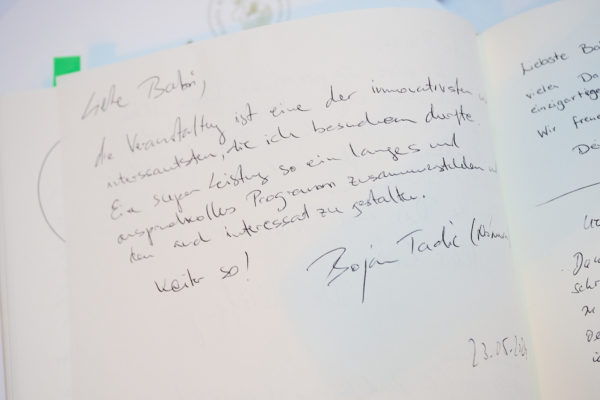 Liebe Babsi,
die Veranstaltung ist eine der innovativsten u
interessantesten, die ich besuchen durfte.
Eine super Leistung so ein langes und
anspruchsvolles Programm zusammenzustellen u
dann auch interessant zu gestalten.
Weiter so!
Bojan Tadić
23.05.20
Liebste Ba
vielen Da
einzigartige
Wir freue
Dei